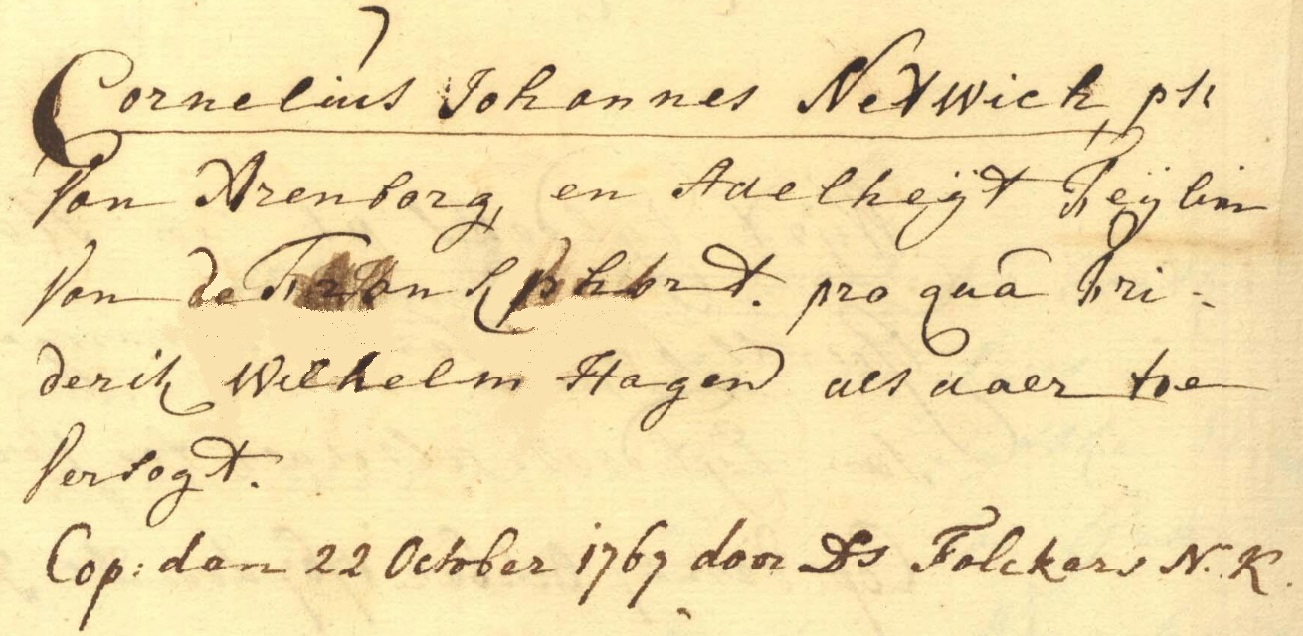 Cornelius Johannes Netwick, ps:
Van Arenborg, en Adelheÿt Feÿlin
Van de Frankphort. pro qua Fri-
derik Wilhelm Hagen als daer toe
Versogt.
Cop: den 22 October 1767 door Ds Folckers N. K.